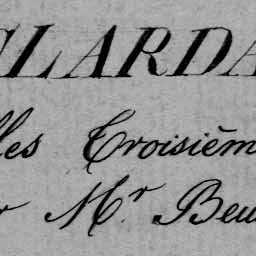 CLARDA
lles Troisièm
r Mr Beu